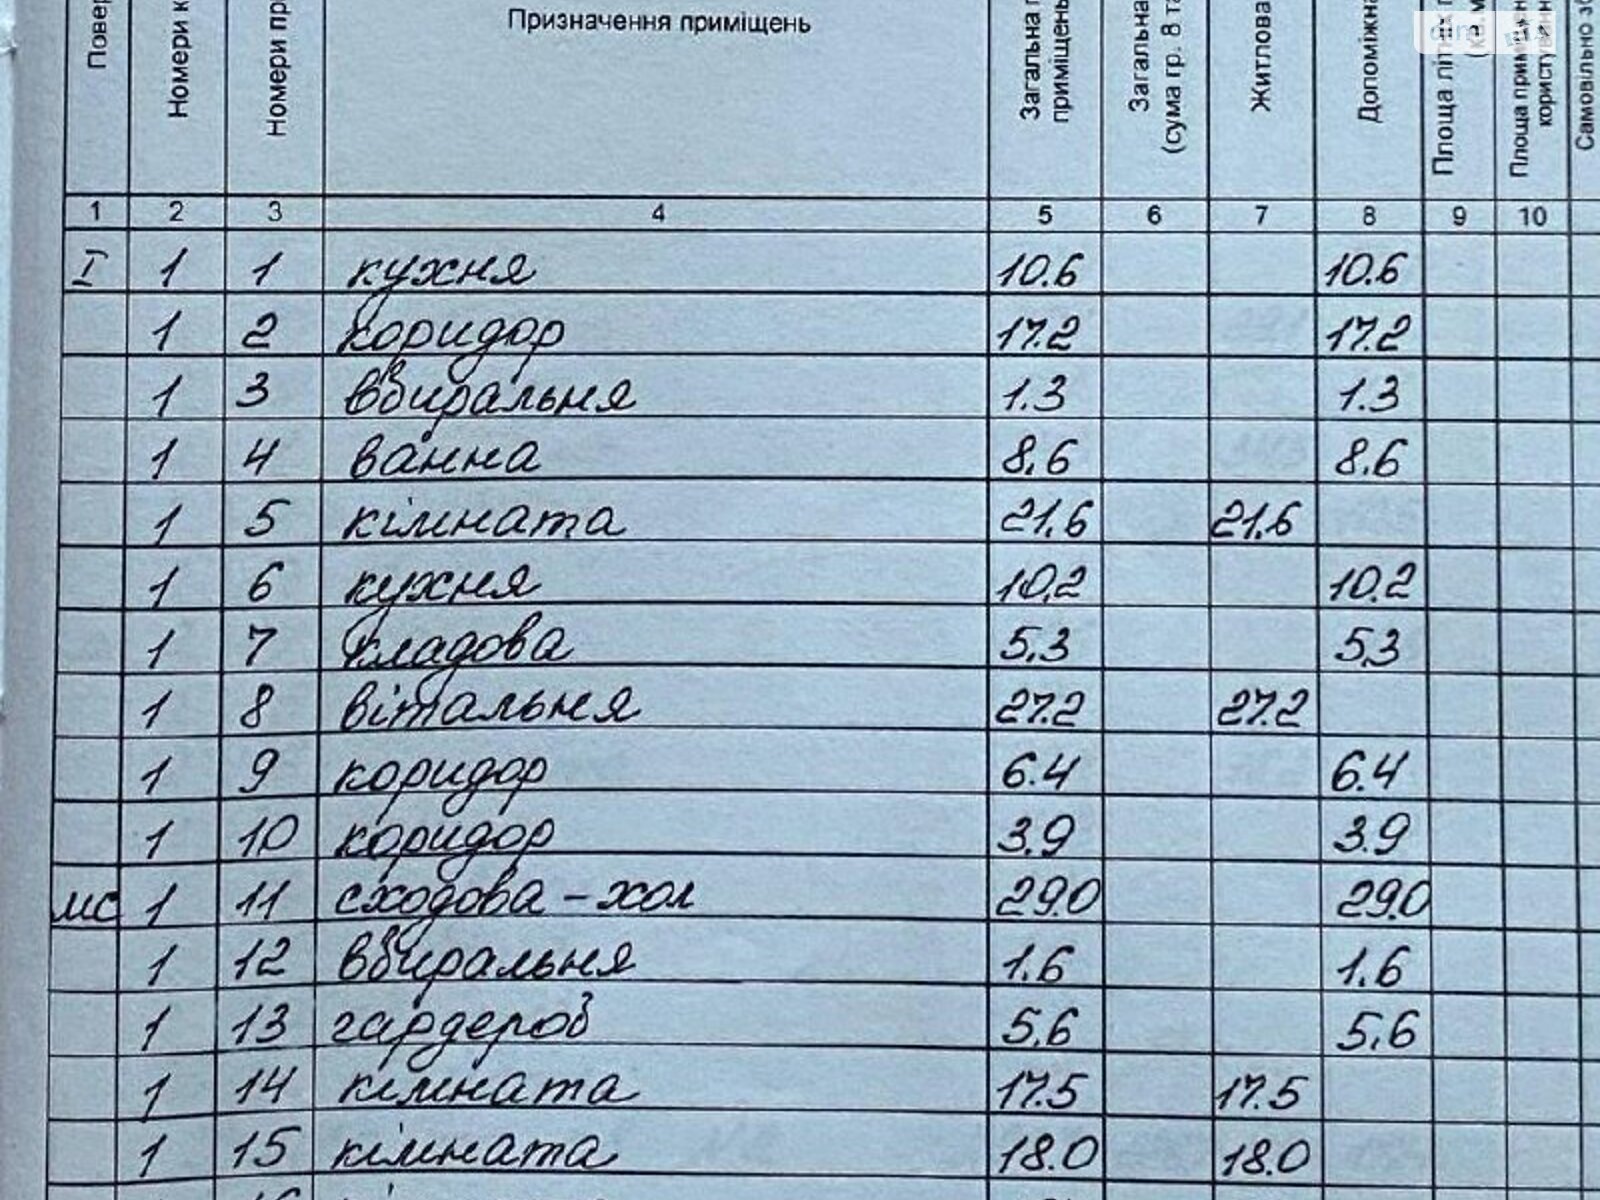 Повер
Номери к
Номери пр
Призначення приміщень
Загальна п
приміщень
Загальна
(сума гр. 8 та
Житлова
Допоміжна
Площа літ
Площа прим
користуванн
Самовільно
1 2 3 4 5 6 7 8 9 10
I 1 1 кухня 10.6 10.6
1 2 коридор 17.2 17.2
1 3 вбиральня 1.3 1.3
1 4 ванна 8,6 8.6
1 5 кімната 21,6 21,6
1 6 кухня 10,2 10.2
1 7 кладова 5,3 5,3
1 8 вітальня 27.2 27.2
1 9 коридор 6.4 6.4
1 10 коридор 3.9 3.9
мс 1 11 сходова - хол 29.0 29.0
1 12 вбиральня 1.6 1.6
1 13 гардероб 5,6 5,6
1 14 кімната 17.5 17.5
1 15 кімната 18.0 18.0